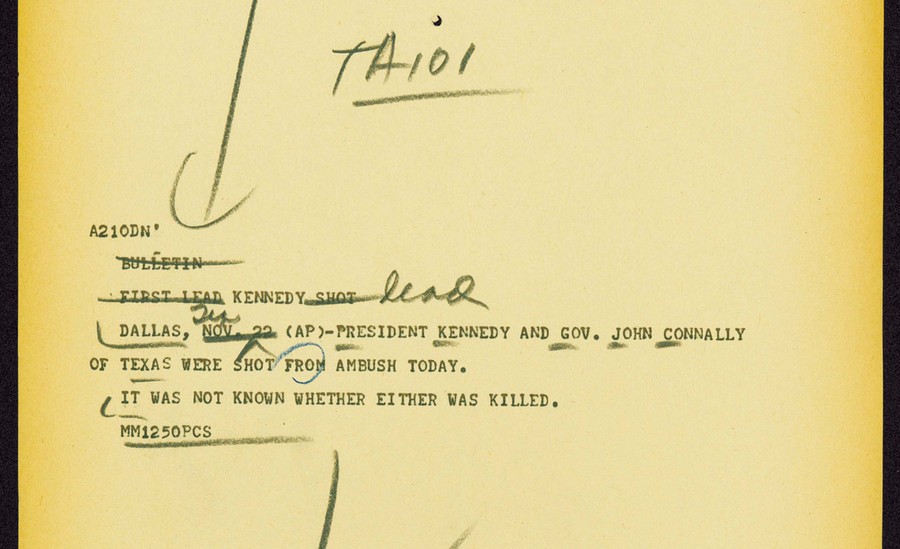 TA101
A210DN'
BULLETIN
FIRST LEAD KENNEDY SHOT lead
Tex
DALLAS, NOV. 22 (AP)-PRESIDENT KENNEDY AND GOV. JOHN CONNALLY
OF TEXAS WERE SHOT FROM AMBUSH TODAY.
IT WAS NOT KNOWN WHETHER EITHER WAS KILLED.
MM1250PCS